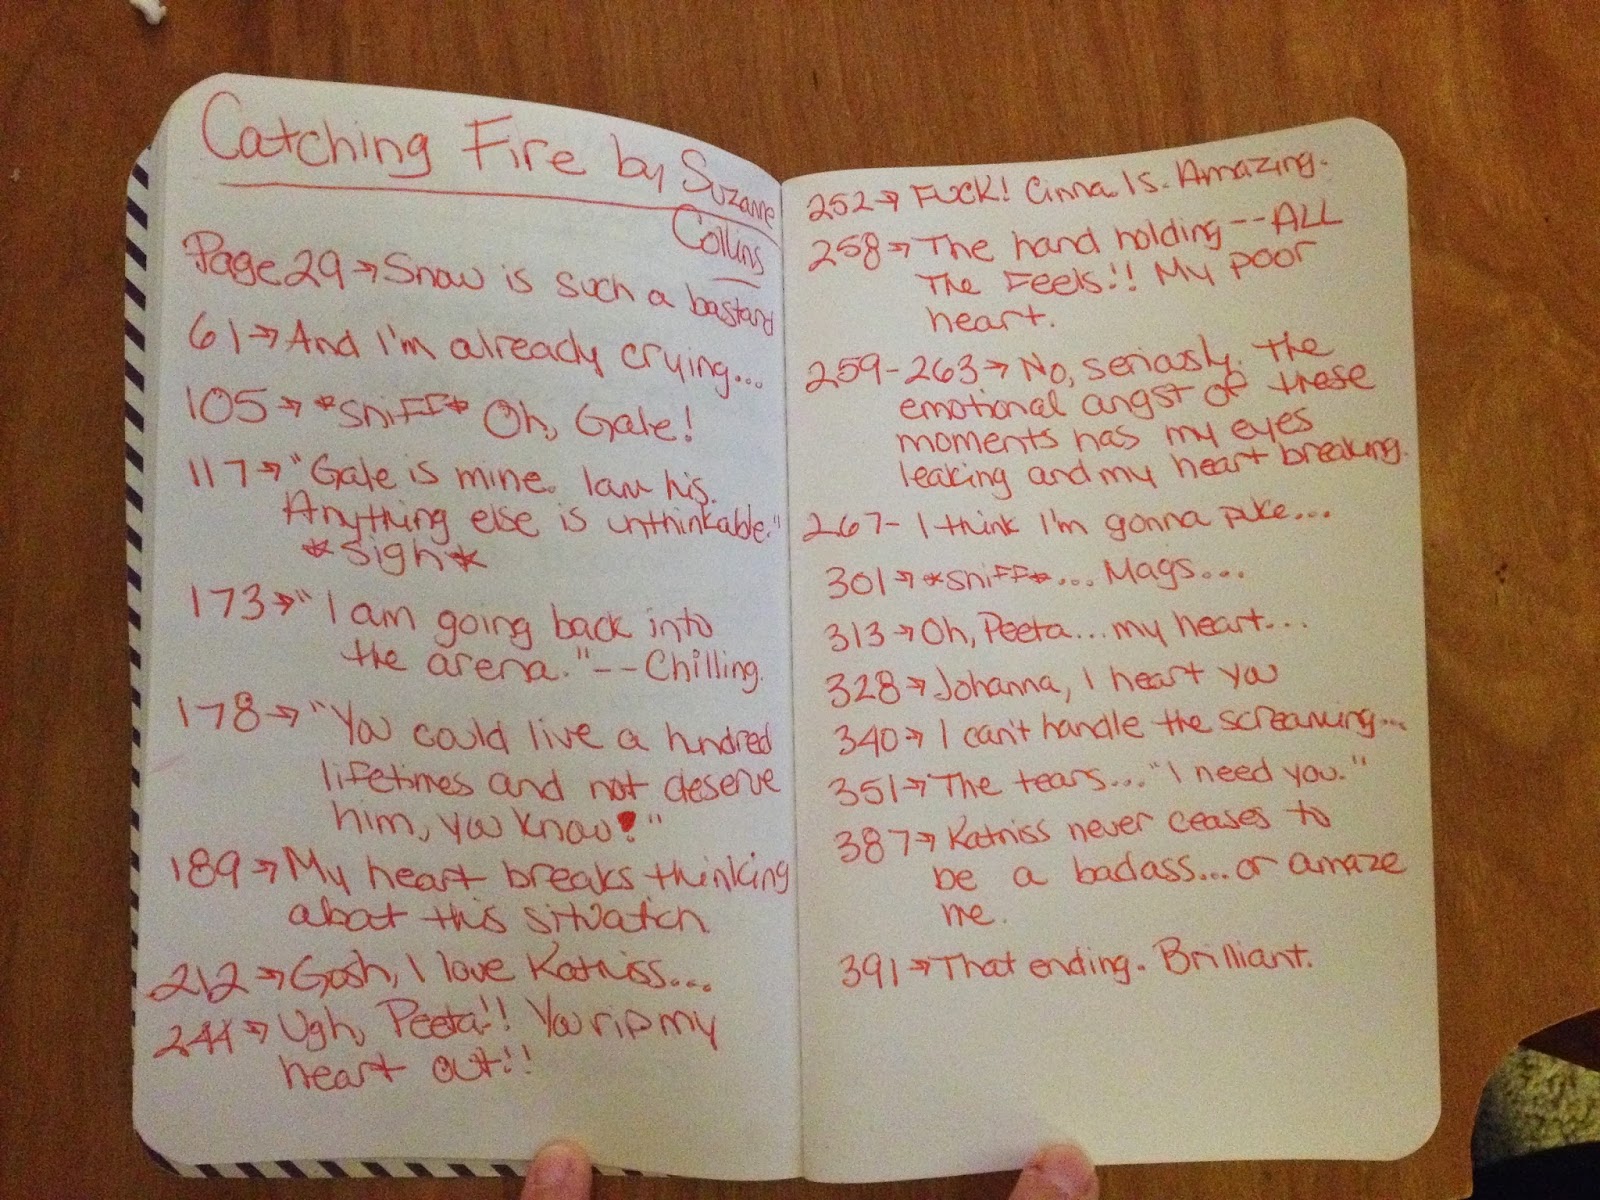 Catching Fire by Suzanne
Collins
Page 29→Snow is such a bastard
61→And I'm already crying...
105→*sniff* Oh, Gale!
117→"Gale is mine. I am his.
Anything else is unthinkable."
*sigh*
173→"I am going back into
the arena."--Chilling.
178→"You could live a hundred
lifetimes and not deserve
him, you know!"
189→My heart breaks thinking
about this situation.
212→Gosh, I love Katniss...
244→Ugh, Peeta!! You rip my
heart out!!
252→FUCK! Cinna Is. Amazing.
258→The hand holding--ALL
The Feels!! My poor
heart.
259-263→No, seriously. The
emotional angst of these
moments has my eyes
leaking and my heart breaking.
267- I think I'm gonna puke...
301→*sniff*... Mags...
313→Oh, Peeta...my heart...
328→Johanna, I heart you
340→I can't handle the screaming...
351→The tears..."I need you."
387→Katniss never ceases to
be a badass...or amaze
me.
391→That ending. Brilliant.